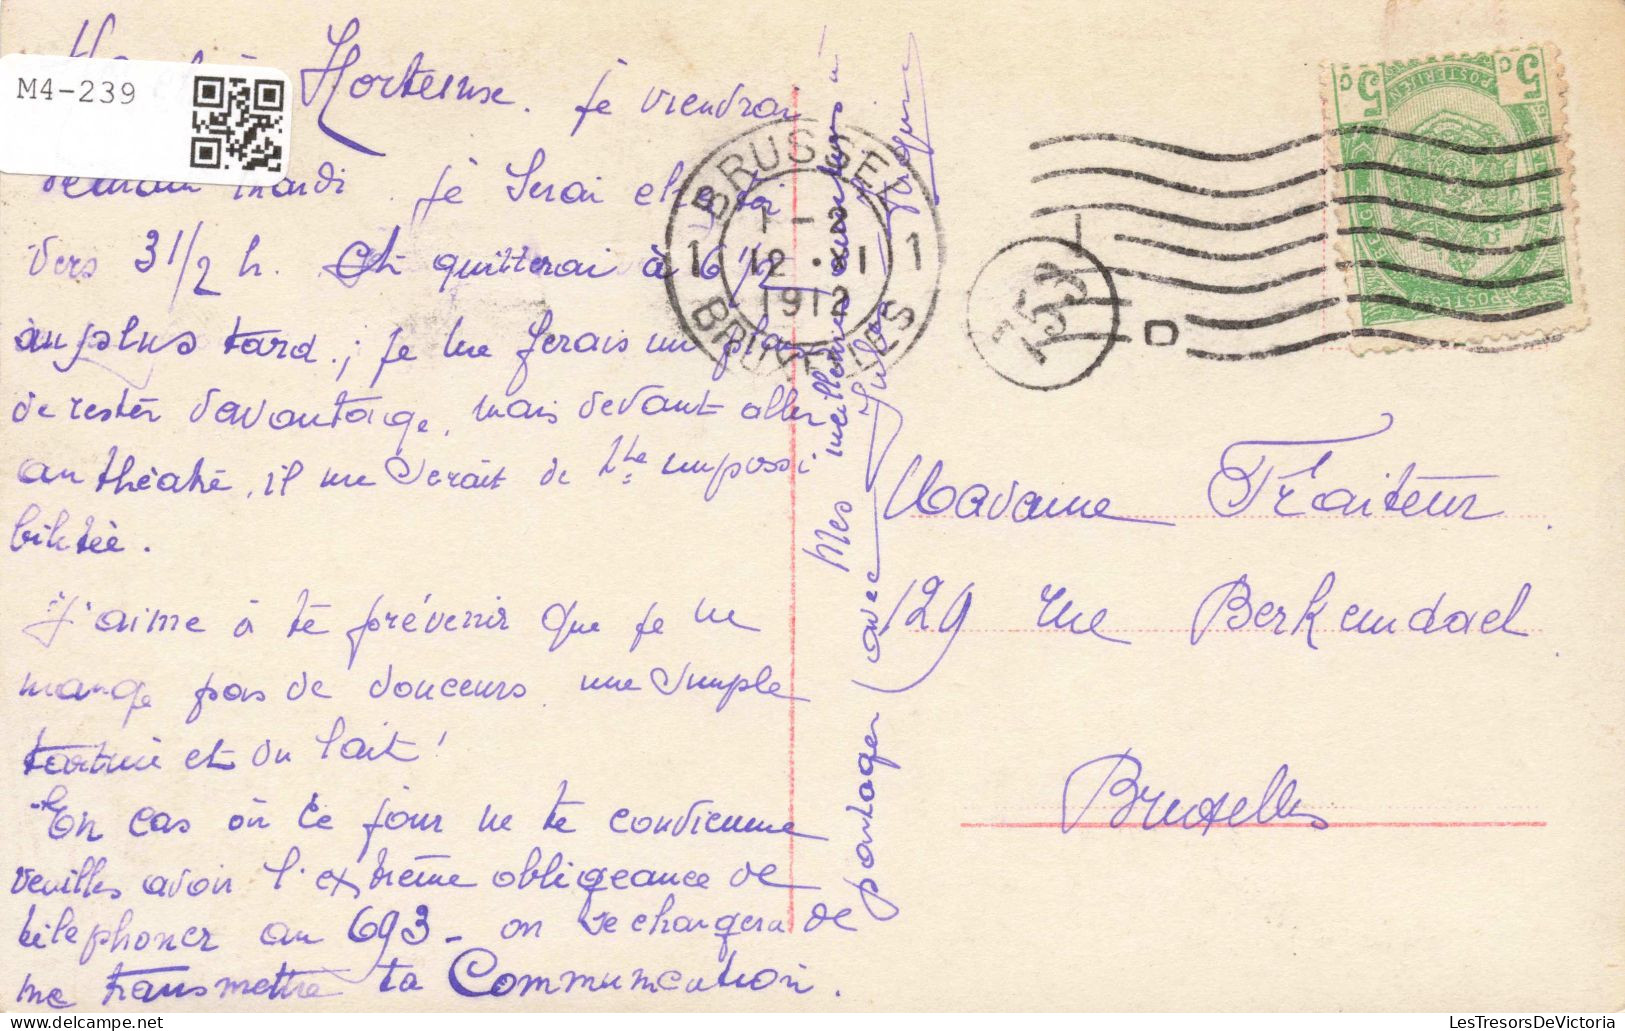 M4-239
Hortense. je viendrai
demain mardi. je serai chez toi
vers 3 1/2 h. et quitterai à 6 1/2
au plus tard.; je me ferais un plaisir
de rester davantage, mais devant aller
au théâtre, il me serait de tte impossi
bilitée.
J'aime à te prévenir que je ne
mange pas de douceurs une simple
tartine et du lait!
En cas où ce jour ne te convienne
veuilles avoir l'extrême obligeance de
téléphoner au 693 - on se chargera de
me transmettre ta Communication.
Mes meilleures amitiés à
partager avec Jules
BRUSSEL
1 1
12 · XI
1912
BRUXELLES
753
D
5 c 5 c
POSTERIJEN
POSTES
Madame Traiteur
129 rue Berkendael
Bruxelles
www.delcampe.net
LesTresorsDeVictoria